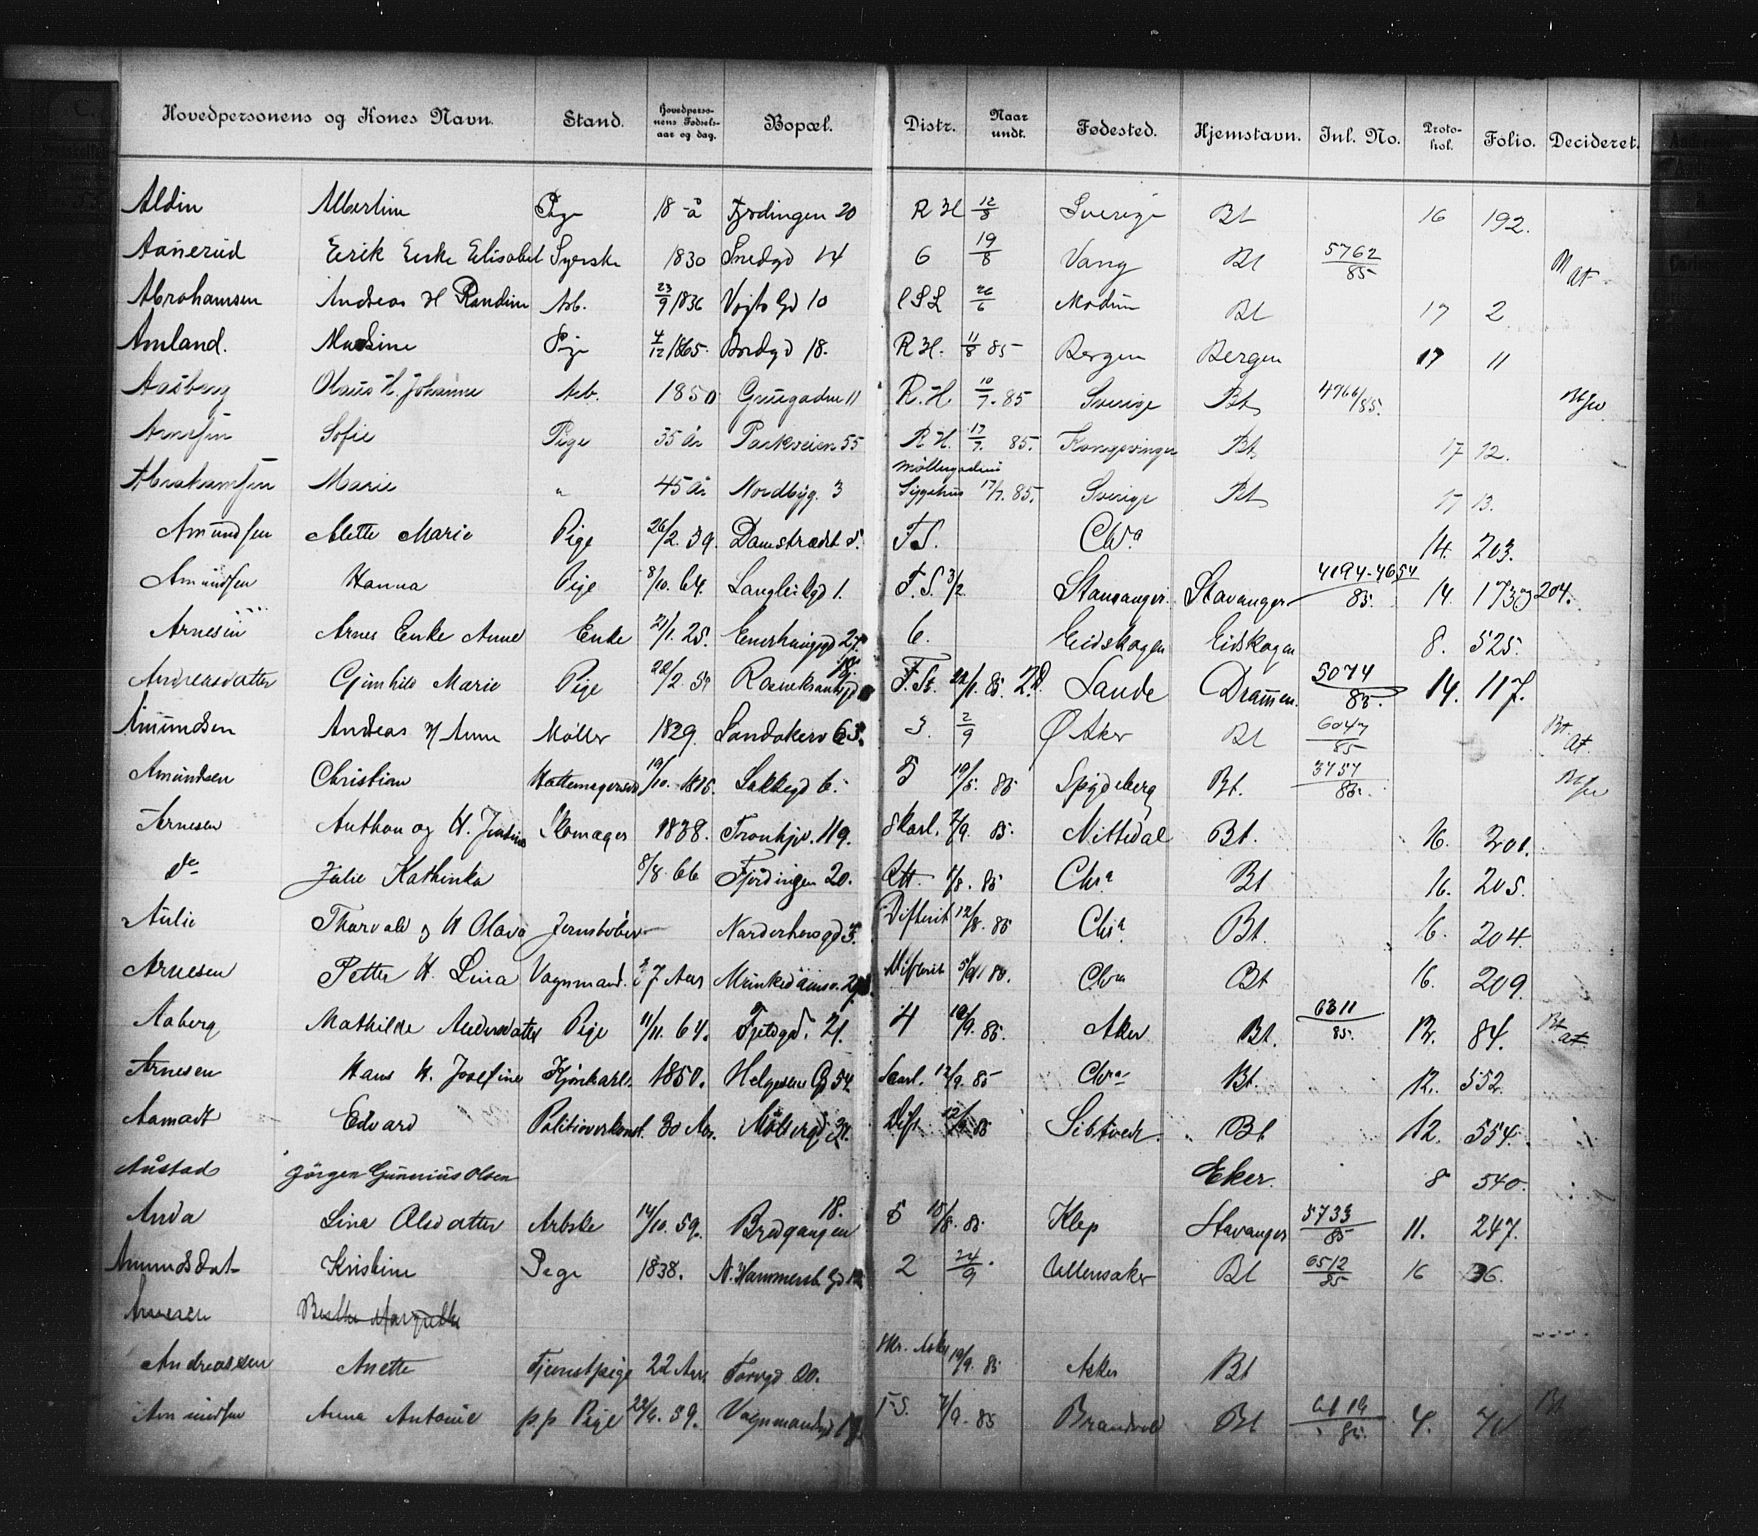 Hovedpersonens og Kones Navn. Stand. Hovedpersonens Fødselsaar og dag. Bopæl. Distr. Naar undt. Fødested. Hjemstavn. Inl. No. Protokol. Folio. Decideret.
Aldin Albertine Pige 18 - å Fjordingen 20 R H 12/8 Sverige Bt 16 192.
Aanerud Eirik Enke Elisabet Syerske 1830 Smedgd 14 6 19/8 Vang Bt 5762/85 Bt at
Abrahamsen Andreas H Randine Arb. 23/9 1836 Vogts Gd 10 26/6 Modum Bt 17 2
Amland. Pige 4/12 1865. Bordgd 18. R H. 11/8 85 Bergen Bergen 17 11
Aasberg Olaus H. Johanne Arb. 1850 Gruegaden 11 R. H. 10/7. 85 Sverige Bt 4966/85.
Arnesen Sofie Pige 35 år Parkveien 55 R. H. 17/7. 85. Kongsvinger Bt 17 12.
Abrahamsen Marie " 45 år Nordbyg. 3 Møllergadens Sygehus 17/7. 85. Sverige Bt 17 13.
Amundsen Alette Marie Pige 26/2. 39. Damstrædet 5. F S. Chra 14. 203.
Amundsen Hanna Pige 8/10. 64. Langleikgd 1. F. S. 3/2 Stavanger. Stavanger 4194-4654/85. 14. 173 og 204.
Arnesen Arnes Enke Anne Enke 21/1. 25. Enerhauggd 27. 6. Eidskogen Eidskogen 8. 525.
Andersdatter Gunhild Marie Pige 22/2. 59 Rosenkrantzgd 19. F. St. 22/1. 85. Sande Drammen. 5074/85. 14. 117.
Amundsen Andreas H Anne Møller 1829. Sandakerv 63. 3. 2/9 Ø Aker Bt 6047/85 Bt at.
Amundsen Christian 19/10. 1815. Lakkegd 6. 5 19/5. 85 Spydeberg Bt. 3757/85.
Arnesen Anthon og H. Skomager 1838. Tronhjv. 119. Skarl. 7/9. 85. Nittedal Bt. 16. 201.
do Julie Kathinka 8/8. 66 Fjordingen 20. /8. 85 Chra Bt 16. 205.
Aulie Thorvald og H Olava Jernstøber Difterit 12/8. 85 Chra Bt. 16. 204.
Arnesen Petter H. Lina Vognmand. 7 Aar Munkedamsv. Difterit 80. Chra Bt 16. 209.
Aaberg Mathilde Andersdatter Pige 11/11. 64. Fjeldgd. 21. 4 19/9. 85. Aker Bt. 6311/85. 12. 84. Bt at.
Arnesen Hans H. Josefine 1850. Helgesens G 54 Scarl. 12/9. 85 Chra Bt. 12. 552.
Aamodt Edvard Politioverkonst. 30 Aar. Møllergd. Dift 12/9 85 Bt 12. 554.
Austad Jørgen Gunnius Olsen Eker. 8 540.
Anda Lina Olsdatter Arbske 14/10. 59. Bredgangen 18. 5 15/8. 85. Klep Stavanger 5733/85 11. 247.
Amundsdat Kristine Pige 1838. N. Hammersb. Gd 12 2 24/9. Ullensaker Bt 6512/85 16 36.
Arnesen Berthe Margrethe
Andreassen Anette Tjenestpige 22 Aar. Torvgd. 20. Aker 19/9. 85 Asker Bt
Amundsen Anna Antonie p.p Pige 22/6. 59. Vognmandsgd F S. 7/9. 85 Brandvold Bt 4. Bt